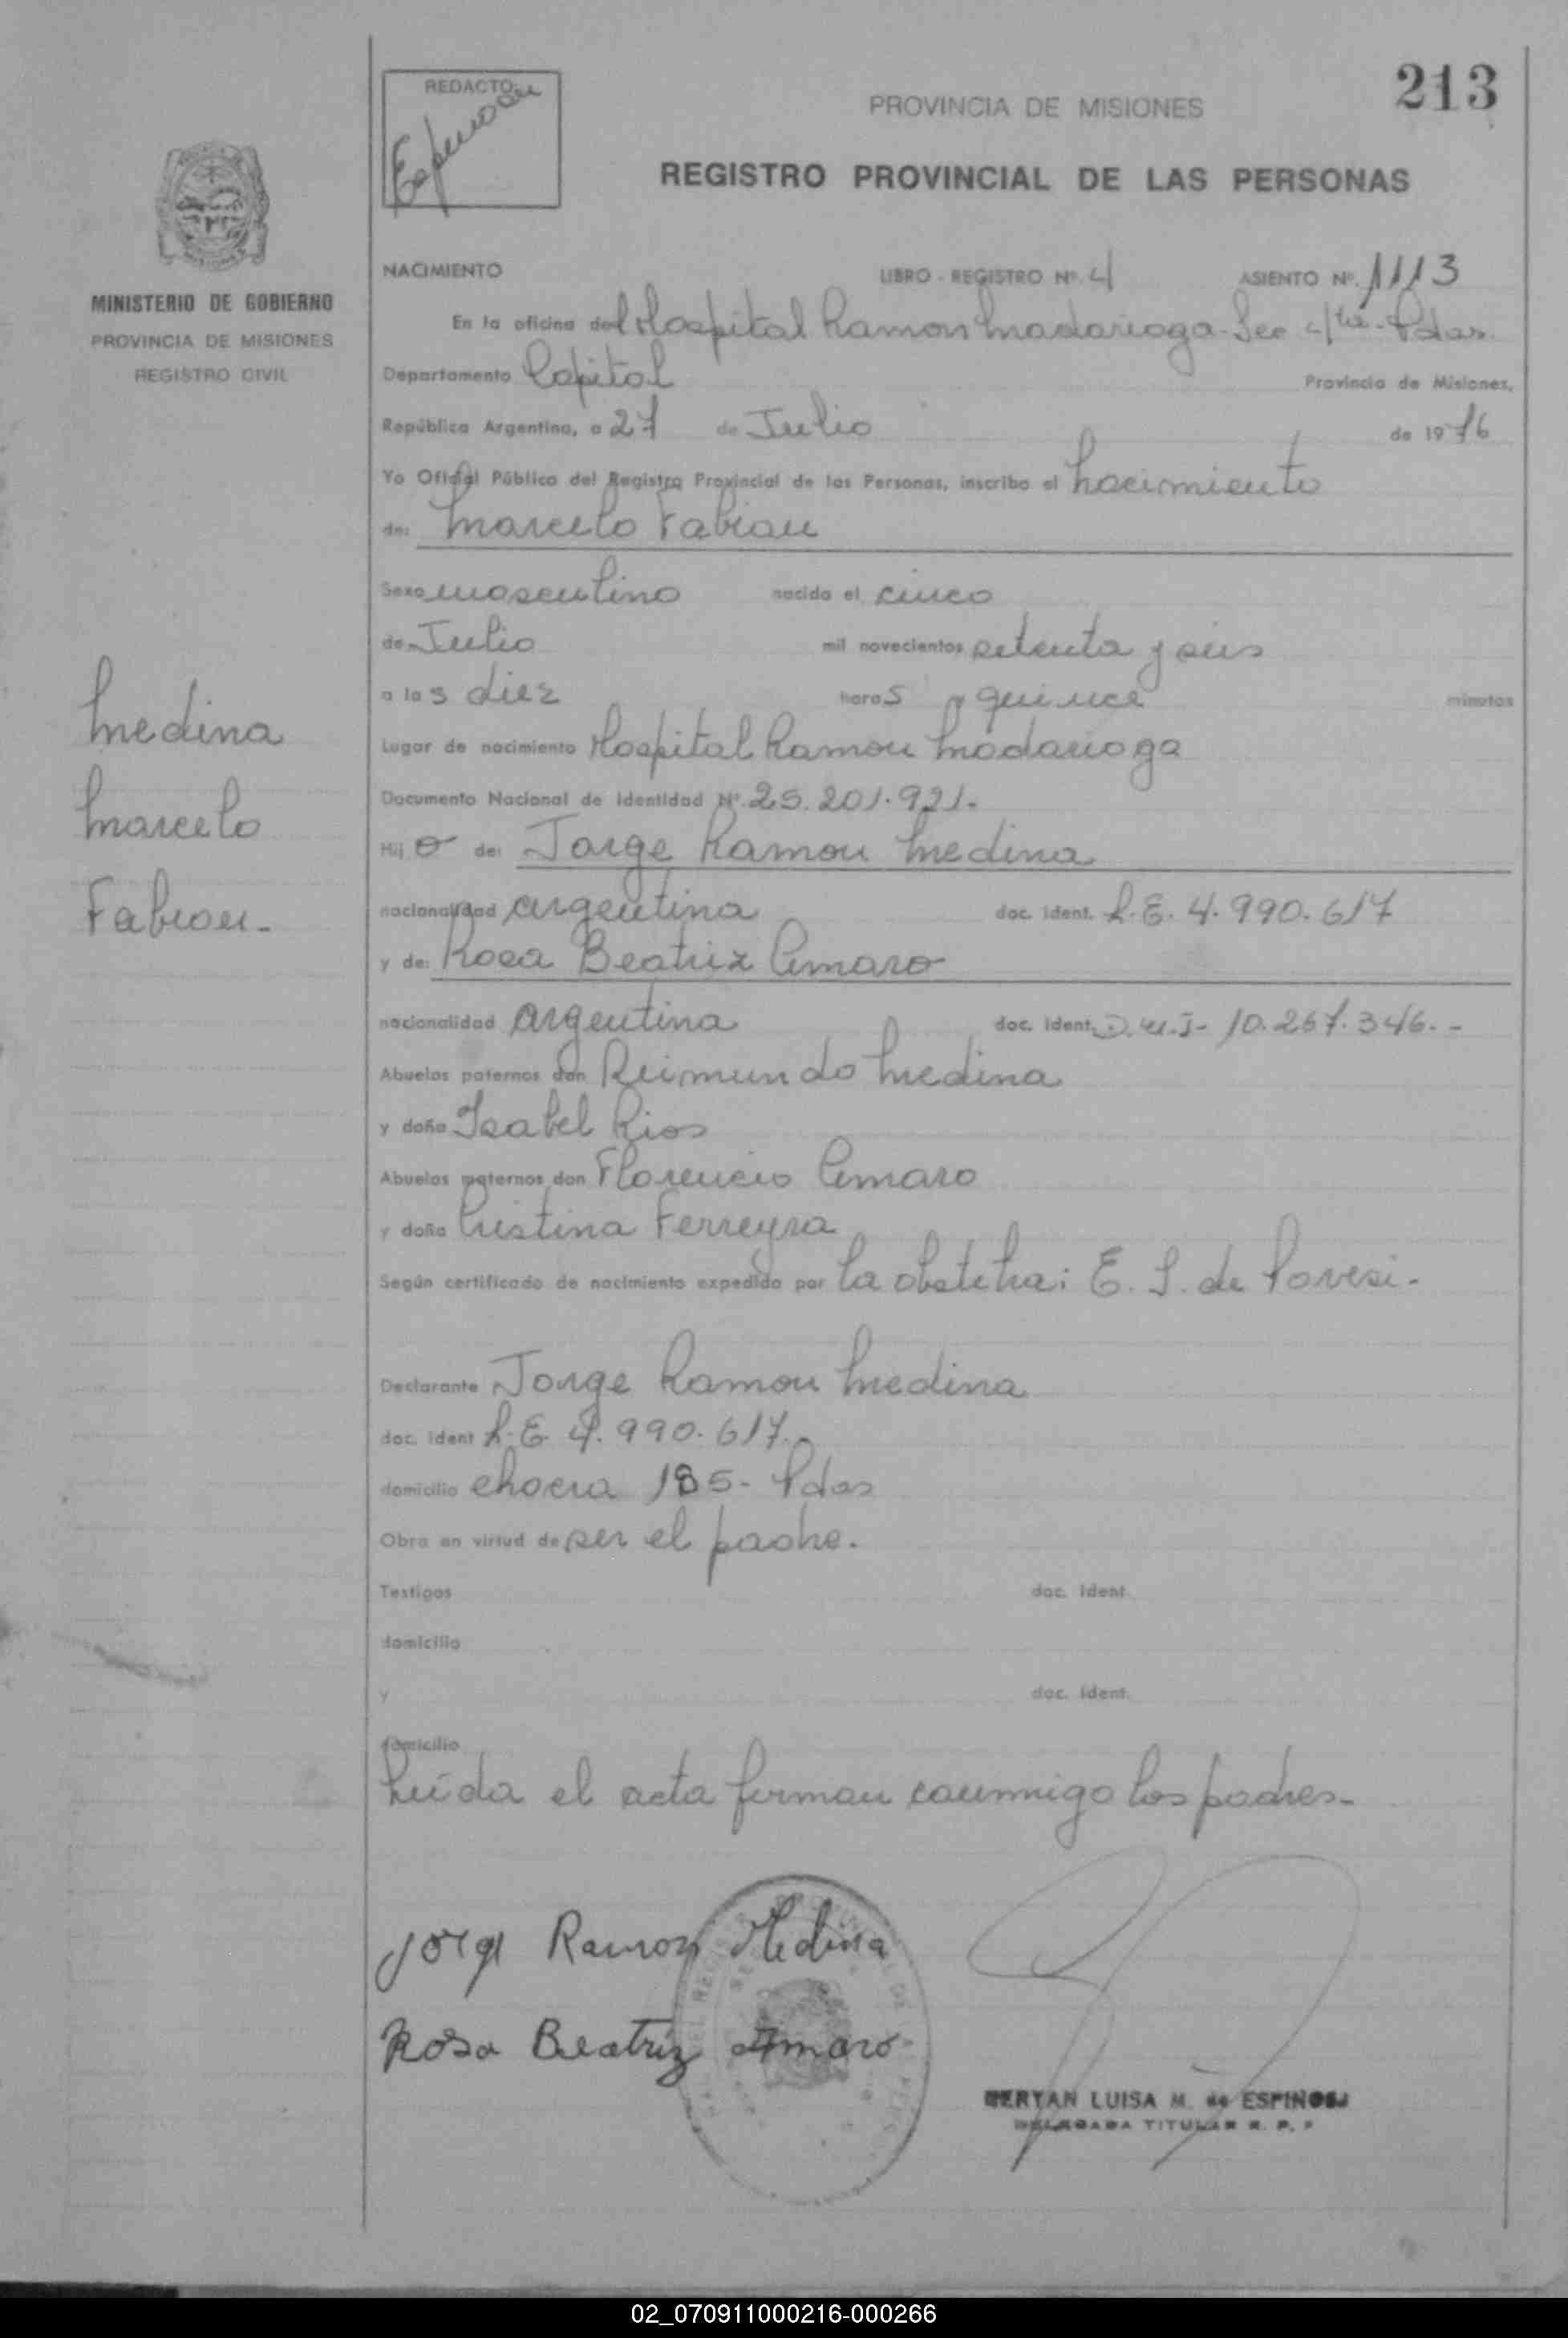 213
REDACTO:
Espinosa
PROVINCIA DE MISIONES
REGISTRO PROVINCIAL DE LAS PERSONAS
MINISTERIO DE GOBIERNO
PROVINCIA DE MISIONES
REGISTRO CIVIL
NACIMIENTO LIBRO - REGISTRO Nº 4 ASIENTO Nº. 1113
En la oficina del Hospital Ramon Madariaga - Sec 4ta - Pdas.
Departamento Capital Provincia de Misiones,
República Argentina, a 27 de Julio de 1976
Yo Oficial Público del Registro Provincial de las Personas, inscribo el Nacimiento
de: Marcelo Fabian
Sexo masculino nacido el cinco
de Julio mil novecientos setenta y seis
a las diez horas y quince minutos
Lugar de nacimiento Hospital Ramon Madariaga
Documento Nacional de Identidad Nº. 25.201.921.
Hijo de: Jorge Ramon Medina
nacionalidad argentina doc. ident. L.E. 4.990.617
y de: Rosa Beatriz Amaro
nacionalidad argentina doc. ident. D.N.I- 10.267.346.-
Abuelos paternos don Reimundo Medina
y doña Isabel Rios
Abuelos maternos don Florencio Amaro
y doña Cristina Ferreyra
Según certificado de nacimiento expedido por la obstetra: E. S. de Pavesi.
Declarante Jorge Ramon Medina
doc. ident L.E. 4.990.617.-
domicilio chacra 185- Pdas
Obra en virtud de ser el padre.
Testigos doc. ident.
domicilio
y doc. ident.
domicilio
Leída el acta firman conmigo los padres-
Medina
Marcelo
Fabian-
Jorge Ramon Medina
Rosa Beatriz Amaro
LUISA M. de ESPINOSA
TITULAR R. P. P
02_070911000216-000266